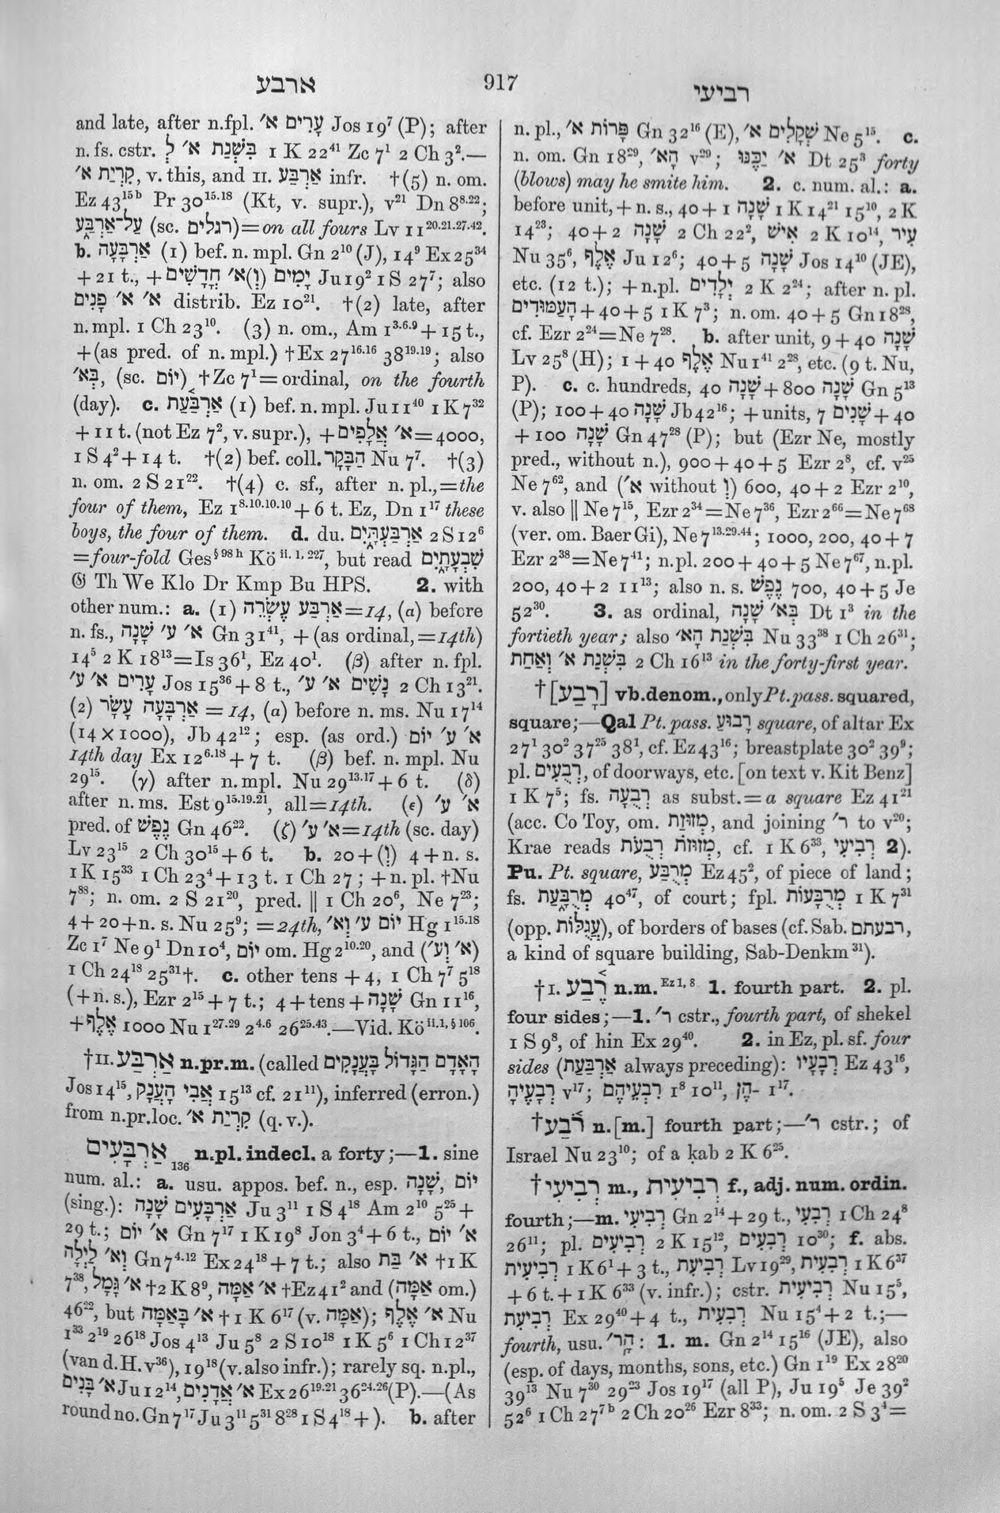 ארבע
917
רביעי
and late, after n.fpl. עָרִים א׳ Jos 19⁷ (P); after
n. fs. cstr. בִּשְׁנַת א׳ לְ 1 K 22⁴¹ Zc 7¹ 2 Ch 3².—
קִרְיַת א׳, v. this, and II. אַרְבַּע infr. †(5) n. om.
Ez 43¹⁵ᵇ Pr 30¹⁵·¹⁸ (Kt, v. supr.), v²¹ Dn 8⁸·²²;
עַל־אַרְבַּע (sc. רגלים)=on all fours Lv 11²⁰·²¹·²⁷·⁴².
b. אַרְבָּעָה (1) bef. n. mpl. Gn 2¹⁰ (J), 14⁹ Ex 25³⁴
+ 21 t., + יָמִים (וְ)א׳ חֳדָשִׁים Ju 19² 1 S 27⁷; also
א׳ א׳ פָנִים distrib. Ez 10²¹. †(2) late, after
n. mpl. 1 Ch 23¹⁰. (3) n. om., Am 1³·⁶·⁹ + 15 t.,
+(as pred. of n. mpl.) †Ex 27¹⁶·¹⁶ 38¹⁹·¹⁹; also
בְּא׳, (sc. יוֹם) †Zc 7¹=ordinal, on the fourth
(day). c. אַרְבַּעַת (1) bef. n. mpl. Ju 11⁴⁰ 1 K 7³²
+ 11 t. (not Ez 7², v. supr.), + א׳ אֲלָפִים=4000,
1 S 4² + 14 t. †(2) bef. coll. הַבָּקָר Nu 7⁷. †(3)
n. om. 2 S 21²². †(4) c. sf., after n. pl.,=the
four of them, Ez 1⁸·¹⁰·¹⁰·¹⁰ + 6 t. Ez, Dn 1¹⁷ these
boys, the four of them. d. du. אַרְבַּעְתַּיִם 2 S 12⁶
=four-fold Ges§ ⁹⁸ ʰ Kö ii. 1, 227, but read שִׁבְעָתַיִם
𝔊 Th We Klo Dr Kmp Bu HPS. 2. with
other num.: a. (1) אַרְבַּע עֶשְׂרֵה=14, (a) before
n. fs., א׳ ע׳ שָׁנָה Gn 31⁴¹, + (as ordinal,=14th)
14⁵ 2 K 18¹³=Is 36¹, Ez 40¹. (β) after n. fpl.
עָרִים א׳ ע׳ Jos 15³⁶ + 8 t., נָשִׁים א׳ ע׳ 2 Ch 13²¹.
(2) אַרְבָּעָה עָשָׂר =14, (a) before n. ms. Nu 17¹⁴
(14 × 1000), Jb 42¹²; esp. (as ord.) א׳ ע׳ יוֹם
14th day Ex 12⁶·¹⁸ + 7 t. (β) bef. n. mpl. Nu
29¹⁵. (γ) after n. mpl. Nu 29¹³·¹⁷ + 6 t. (δ)
after n. ms. Est 9¹⁵·¹⁹·²¹, all=14th. (ε) א׳ ע׳
pred. of נֶפֶשׁ Gn 46²². (ζ) א׳ ע׳=14th (sc. day)
Lv 23¹⁵ 2 Ch 30¹⁵ + 6 t. b. 20 + (וְ) 4 + n. s.
1 K 15³³ 1 Ch 23⁴ + 13 t. 1 Ch 27; + n. pl. †Nu
7⁸⁸; n. om. 2 S 21²⁰, pred. ‖ 1 Ch 20⁶, Ne 7²³;
4 + 20 + n. s. Nu 25⁹; =24th, יוֹם ע׳ וְא׳ Hg 1¹⁵·¹⁸
Zc 1⁷ Ne 9¹ Dn 10⁴, יוֹם om. Hg 2¹⁰·²⁰, and (א׳ וְע׳)
1 Ch 24¹⁸ 25³¹†. c. other tens + 4, 1 Ch 7⁷ 5¹⁸
(+ n. s.), Ezr 2¹⁵ + 7 t.; 4 + tens + שָׁנָה Gn 11¹⁶,
+ אֶלֶף 1000 Nu 1²⁷·²⁹ 2⁴·⁶ 26²⁵·⁴³.—Vid. Kö ii. 1, § 106.
†II. אַרְבַּע n.pr.m. (called הָאָדָם הַגָּדוֹל בָּעֲנָקִים
Jos 14¹⁵, אֲבִי הָעֲנָק 15¹³ cf. 21¹¹), inferred (erron.)
from n.pr.loc. קִרְיַת א׳ (q.v.).
אַרְבָּעִים 136 n.pl. indecl. a forty;—1. sine
num. al.: a. usu. appos. bef. n., esp. שָׁנָה, יוֹם
(sing.): אַרְבָּעִים שָׁנָה Ju 3¹¹ 1 S 4¹⁸ Am 2¹⁰ 5²⁵ +
29 t.; א׳ יוֹם Gn 7¹⁷ 1 K 19⁸ Jon 3⁴ + 6 t., א׳ יוֹם
וְא׳ לַיְלָה Gn 7⁴·¹² Ex 24¹⁸ + 7 t.; also א׳ בַּת †1 K
7³⁸, א׳ גָּמָל †2 K 8⁹, א׳ אַמָּה †Ez 41² and (אַמָּה om.)
46²², but א׳ בָּאַמָּה †1 K 6¹⁷ (v. אַמָּה); א׳ אֶלֶף Nu
1³³ 2¹⁹ 26¹⁸ Jos 4¹³ Ju 5⁸ 2 S 10¹⁸ 1 K 5⁶ 1 Ch 12³⁷
(van d. H. v³⁶), 19¹⁸ (v. also infr.); rarely sq. n.pl.,
א׳ בָּנִים Ju 12¹⁴, א׳ אֲדָנִים Ex 26¹⁹·²¹ 36²⁴·²⁶ (P).—(As
round no. Gn 7¹⁷ Ju 3¹¹ 5³¹ 8²⁸ 1 S 4¹⁸ + ). b. after
n. pl., פָּרוֹת א׳ Gn 32¹⁶ (E), שְׁקָלִים א׳ Ne 5¹⁵. c.
n. om. Gn 18²⁹, הָא׳ v²⁹; א׳ יַכֶּנּוּ Dt 25³ forty
(blows) may he smite him. 2. c. num. al.: a.
before unit, + n. s., 40 + 1 שָׁנָה 1 K 14²¹ 15¹⁰, 2 K
14²³; 40 + 2 שָׁנָה 2 Ch 22², אִישׁ 2 K 10¹⁴, עִיר
Nu 35⁶, אֶלֶף Ju 12⁶; 40 + 5 שָׁנָה Jos 14¹⁰ (JE),
etc. (12 t.); + n.pl. יְלָדִים 2 K 2²⁴; after n. pl.
הָעַמּוּדִים + 40 + 5 1 K 7³; n. om. 40 + 5 Gn 18²⁸,
cf. Ezr 2²⁴=Ne 7²⁸. b. after unit, 9 + 40 שָׁנָה
Lv 25⁸ (H); 1 + 40 אֶלֶף Nu 1⁴¹ 2²⁸, etc. (9 t. Nu,
P). c. c. hundreds, 40 שָׁנָה + 800 שָׁנָה Gn 5¹³
(P); 100 + 40 שָׁנָה Jb 42¹⁶; + units, 7 שָׁנִים + 40
+ 100 שָׁנָה Gn 47²⁸ (P); but (Ezr Ne, mostly
pred., without n.), 900 + 40 + 5 Ezr 2⁸, cf. v²⁵
Ne 7⁶², and (א׳ without וְ) 600, 40 + 2 Ezr 2¹⁰,
v. also ‖ Ne 7¹⁵, Ezr 2³⁴=Ne 7³⁶, Ezr 2⁶⁶=Ne 7⁶⁸
(ver. om. Baer Gi), Ne 7¹³·²⁹·⁴⁴; 1000, 200, 40 + 7
Ezr 2³⁸=Ne 7⁴¹; n.pl. 200 + 40 + 5 Ne 7⁶⁷, n.pl.
200, 40 + 2 11¹³; also n. s. נֶפֶשׁ 700, 40 + 5 Je
52³⁰. 3. as ordinal, בְּא׳ שָׁנָה Dt 1³ in the
fortieth year; also בִּשְׁנַת הָא׳ Nu 33³⁸ 1 Ch 26³¹;
בִּשְׁנַת א׳ וְאַחַת 2 Ch 16¹³ in the forty-first year.
†[רָבַע] vb.denom., only Pt. pass. squared,
square;—Qal Pt. pass. רָבוּעַ square, of altar Ex
27¹ 30² 37²⁵ 38¹, cf. Ez 43¹⁶; breastplate 30² 39⁹;
pl. רְבֻעִים, of doorways, etc. [on text v. Kit Benz]
1 K 7⁵; fs. רְבֻעָה as subst.=a square Ez 41²¹
(acc. Co Toy, om. מְזוּזַת, and joining ר׳ to v²⁰;
Krae reads מְזוּזוֹת רְבֻעֹת, cf. 1 K 6³³, רְבִיעִי 2).
Pu. Pt. square, מְרֻבָּע Ez 45², of piece of land;
fs. מְרֻבַּעַת 40⁴⁷, of court; fpl. מְרֻבָּעוֹת 1 K 7³¹
(opp. עֲגֻלּוֹת), of borders of bases (cf. Sab. רבעתם,
a kind of square building, Sab-Denkm ³¹).
†I. רֶבַע n.m. Ez 1, 8 1. fourth part. 2. pl.
four sides;—1. ר׳ cstr., fourth part, of shekel
1 S 9⁸, of hin Ex 29⁴⁰. 2. in Ez, pl. sf. four
sides (אַרְבַּעַת always preceding): רְבָעָיו Ez 43¹⁶,
רְבָעֶיהָ v¹⁷; רִבְעֵיהֶם 1⁸ 10¹¹, הֶן- 1¹⁷.
†רֹבַע n.[m.] fourth part;—ר׳ cstr.; of
Israel Nu 23¹⁰; of a ḳab 2 K 6²⁵.
†רְבִיעִי m., רְבִיעִית f., adj. num. ordin.
fourth;—m. רְבִיעִי Gn 2¹⁴ + 29 t., רְבִעִי 1 Ch 24⁸
26¹¹; pl. רְבִיעִים 2 K 15¹², רְבִעִים 10³⁰; f. abs.
רְבִיעִית 1 K 6¹ + 3 t., רְבִיעִת Lv 19²⁹, רְבִעִית 1 K 6³⁷
+ 6 t. + 1 K 6³³ (v. infr.); cstr. רְבִיעִית Nu 15⁵,
רְבִיעִת Ex 29⁴⁰ + 4 t., רְבִעִית Nu 15⁴ + 2 t.;—
fourth, usu. הָר׳: 1. m. Gn 2¹⁴ 15¹⁶ (JE), also
(esp. of days, months, sons, etc.) Gn 1¹⁹ Ex 28²⁰
39¹³ Nu 7³⁰ 29²³ Jos 19¹⁷ (all P), Ju 19⁵ Je 39²
52⁶ 1 Ch 27⁷ᵇ 2 Ch 20²⁶ Ezr 8³³; n. om. 2 S 3⁴=